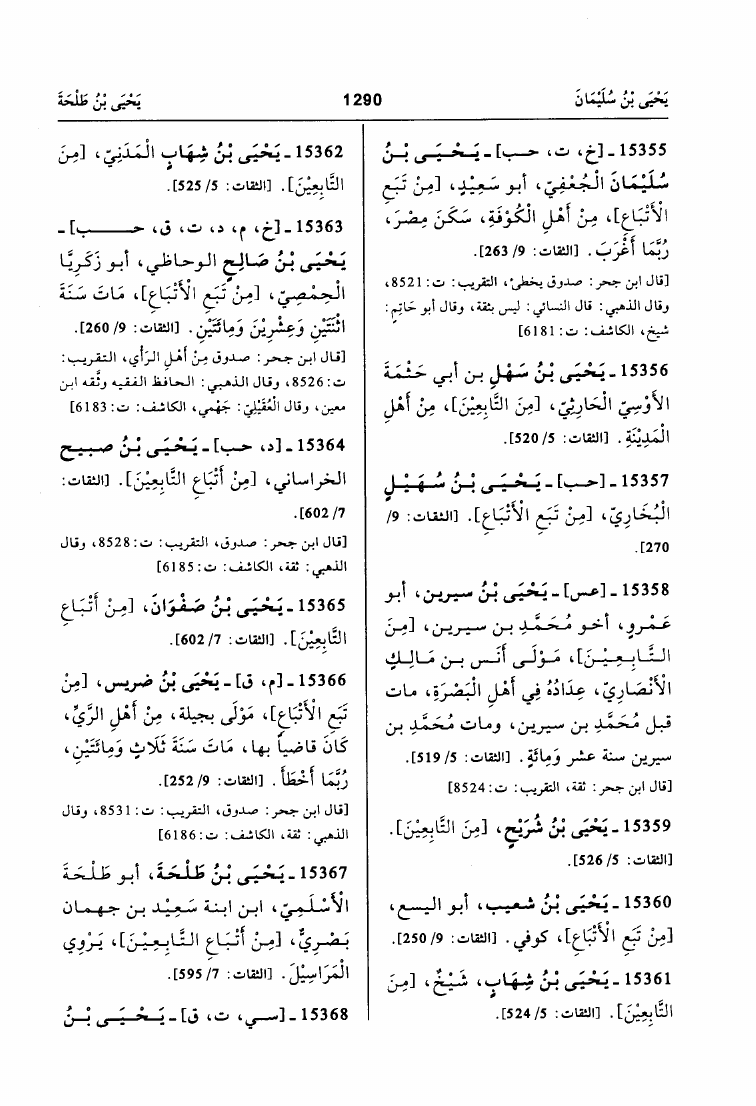 يَحْيَى بْنُ سُلَيْمَانَ
1290
يَحْيَى بْنُ طَلْحَةَ
15355 - [خ، ت، حـب] - يَـحْـيَـى بْـنُ
سُلَيْمَانَ الْجُعْفِيّ، أبو سَعِيْدٍ، [مِنْ تَبَعِ
الأَتْبَاعِ]، مِنْ أَهْلِ الْكُوْفَةِ، سَكَنَ مِصْرَ،
رُبَّمَا أَغْرَبَ. [الثقات: 9/ 263].
[قال ابن حجر: صدوق يخطئ، التقريب: ت:8521،
وقال الذهبي: قال النسائي: ليس بثقة، وقال أبو حَاتِم:
شيخ، الكاشف: ت:6181]
15356 - يَحْيَى بْنُ سَهْلِ بن أبي حَثْمَةَ
الأَوْسِيّ الْحَارِثِيّ، [مِنَ التَّابِعِيْنَ]، مِنْ أَهْلِ
الْمَدِيْنَةِ. [الثقات: 5/ 520].
15357 - [حـب] - يَـحْـيَـى بْـنُ سُـهَـيْـلٍ
الْبُخَارِيّ، [مِنْ تَبَعِ الأَتْبَاعِ]. [الثقات: 9/
270].
15358 - [عس] - يَحْيَى بْنُ سيرين، أبو
عَمْرٍو، أخو مُحَمَّدِ بن سيرين، [مِنَ
التَّـابِـعِـيْـنَ]، مَوْلَى أَنَـس بـن مَـالِـكٍ
الأَنْصَارِيّ، عِدَادُهُ فِي أَهْلِ الْبَصْرَةِ، مات
قبل مُحَمَّدِ بن سيرين، ومات مُحَمَّدِ بن
سيرين سنة عشر وَمِائَةٍ. [الثقات: 5/ 519].
[قال ابن حجر: ثقة، التقريب: ت:8524]
15359 - يَحْيَى بْنُ شُرَيْحٍ، [مِنَ التَّابِعِيْنَ].
[الثقات: 5/ 526].
15360 - يَحْيَى بْنُ شعيب، أبو اليسع،
[مِنْ تَبَعِ الأَتْبَاعِ]، كوفي. [الثقات: 9/ 250].
15361 - يَحْيَى بْنُ شِهَابٍ، شَيْخٌ، [مِنَ
التَّابِعِيْنَ]. [الثقات: 5/ 524].
15362 - يَحْيَى بْنُ شِهَابٍ الْمَدَنِيّ، [مِنَ
التَّابِعِيْنَ]. [الثقات: 5/ 525].
15363 - [خ، م، د، ت، ق، حـــب] -
يَحْيَى بْنُ صَالِحٍ الوحاظي، أبو زَكَرِيَّا
الْحِمْصِيّ، [مِنْ تَبَعِ الأَتْبَاعِ]، مَاتَ سَنَةَ
اثْنَتَيْنِ وَعِشْرِيْنَ وَمِائَتَيْنِ. [الثقات: 9/ 260].
[قال ابن حجر: صدوق مِنْ أَهْلِ الرَّأي، التقريب:
ت:8526، وقال الذهبي: الحافظ الفقيه وثّقه ابن
معين، وقال الْعُقَيْلِيّ: جَهْمِي، الكاشف: ت:6183]
15364 - [د، حب] - يَـحْـيَـى بْـنُ صبيح
الخراساني، [مِنْ أَتْبَاعِ التَّابِعِيْنَ]. [الثقات:
7/ 602].
[قال ابن حجر: صدوق، التقريب: ت:8528، وقال
الذهبي: ثقة، الكاشف: ت:6185]
15365 - يَحْيَى بْنُ صَفْوَانَ، [مِنْ أَتْبَاعِ
التَّابِعِيْنَ]. [الثقات: 7/ 602].
15366 - [م، ق] - يَحْيَى بْنُ ضريس، [مِنْ
تَبَعِ الأَتْبَاعِ]، مَوْلَى بجيلة، مِنْ أَهْلِ الرَّيِّ،
كَانَ قاضياً بها، مَاتَ سَنَةَ ثَلَاثٍ وَمِائَتَيْنِ،
رُبَّمَا أَخْطَأَ. [الثقات: 9/ 252].
[قال ابن حجر: صدوق، التقريب: ت:8531، وقال
الذهبي: ثقة، الكاشف: ت:6186]
15367 - يَحْيَى بْنُ طَلْحَةَ، أبو طَلْحَةَ
الأَسْلَمِيّ، ابن ابنة سَعِيْدِ بن جهمان
بَصْرِيٌّ، [مِنْ أَتْبَاعِ التَّابِعِيْنَ]، يَرْوِي
الْمَرَاسِيْلَ. [الثقات: 7/ 595].
15368 - [سي، ت، ق] - يَـحْـيَـى بْـنُ